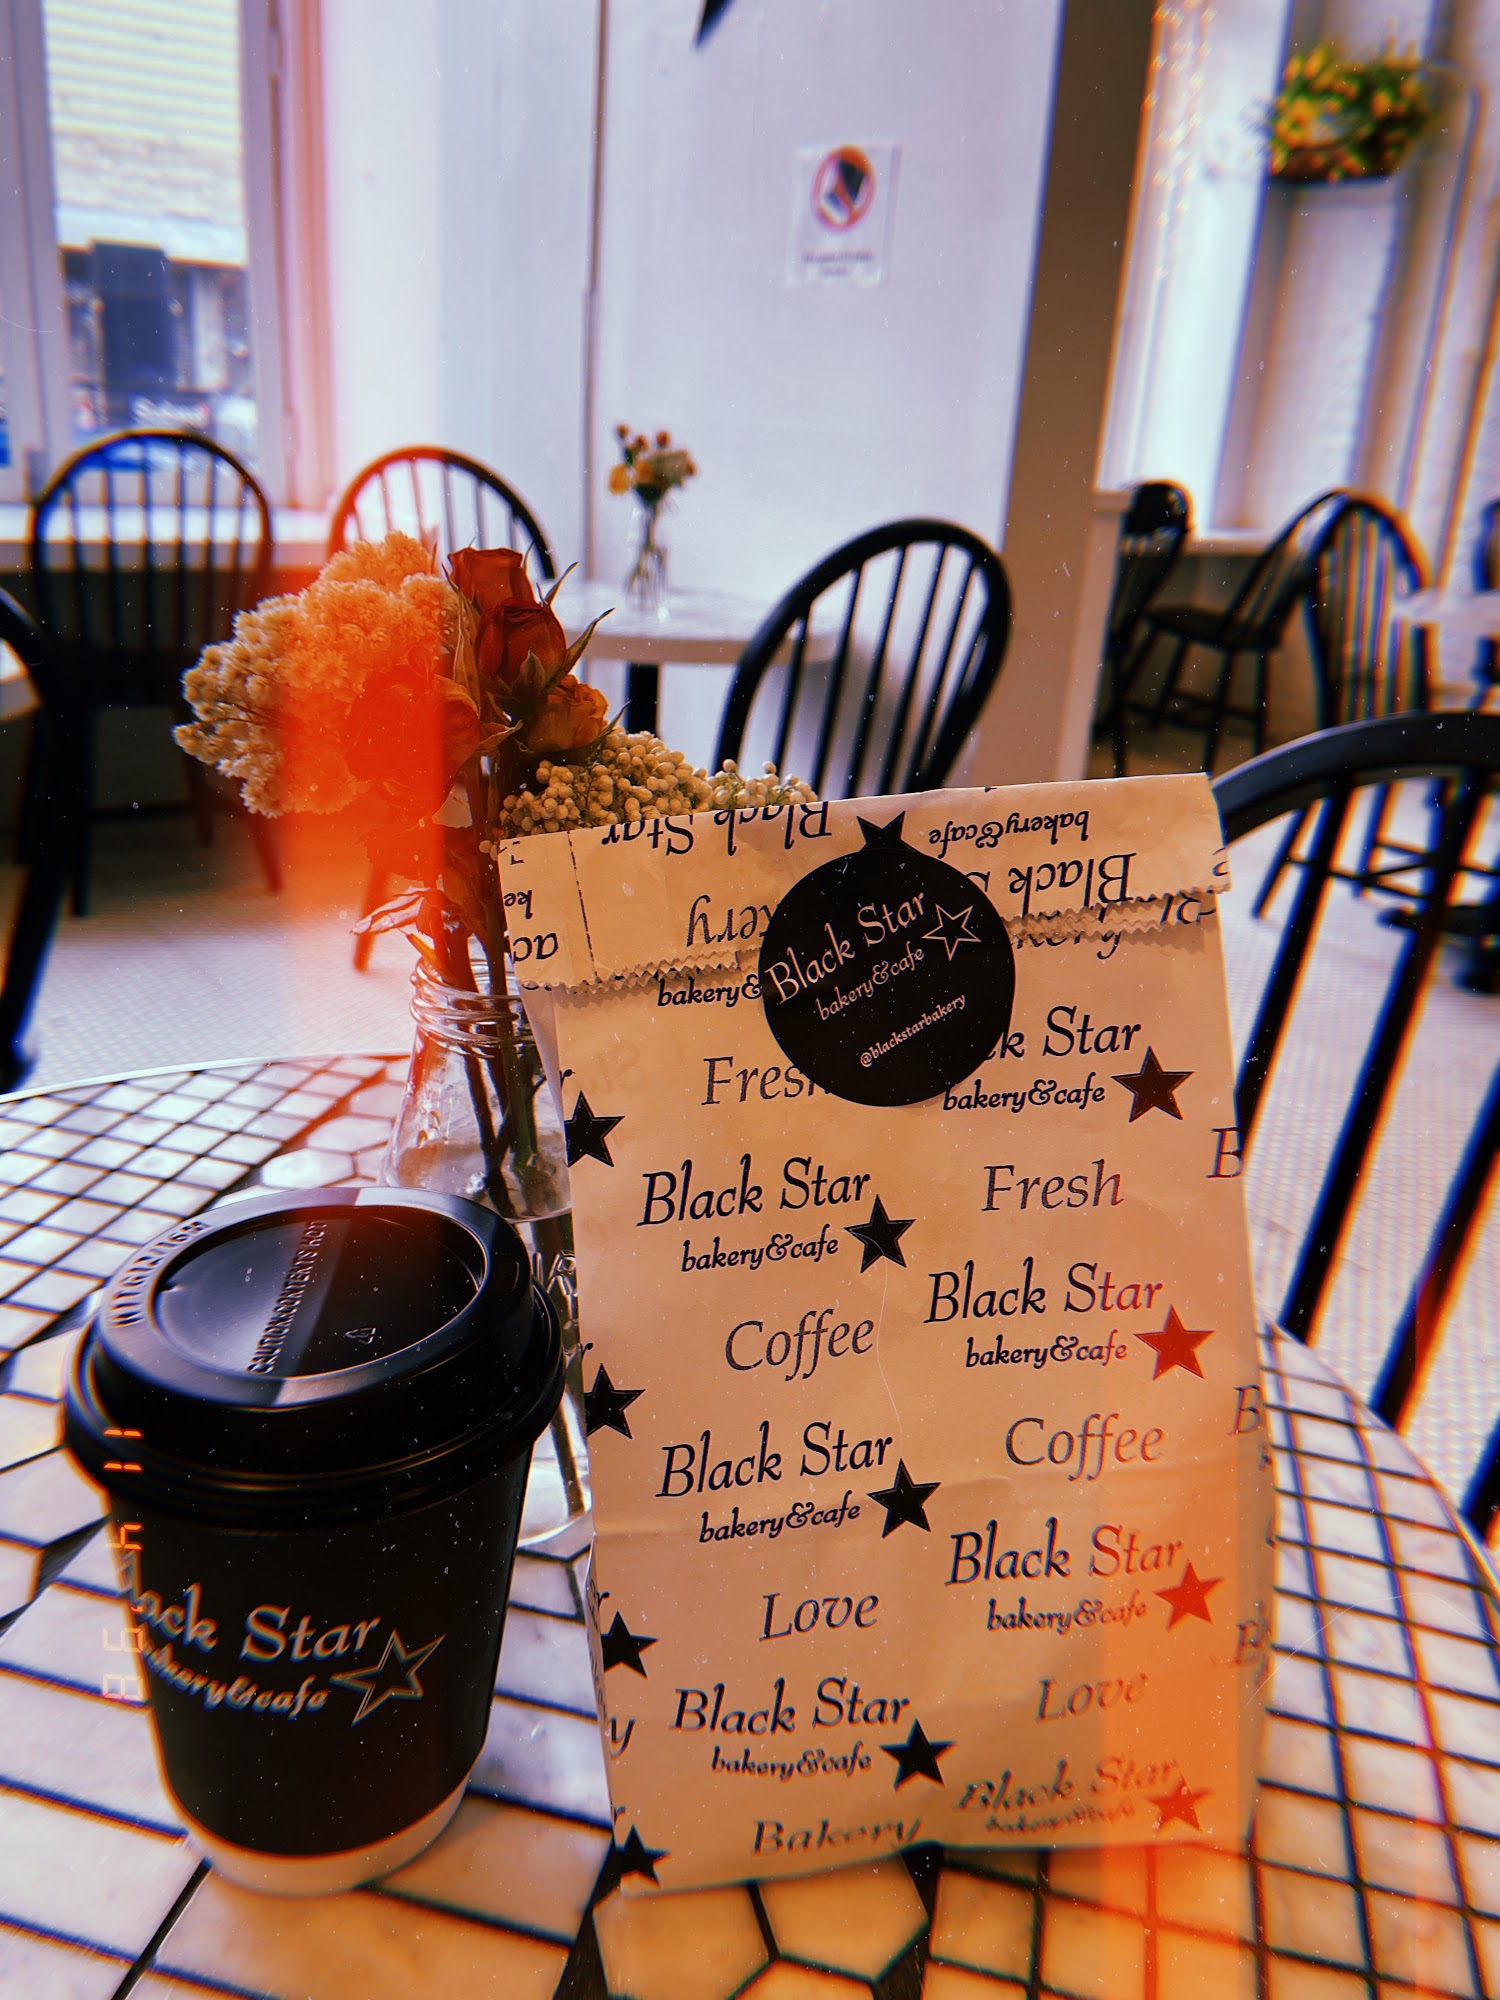 Black Star
bakery&cafe
Black
bakery
Black Star
bakery&cafe
@blackstarbakery
bakery&
Star
bakery&cafe
Fresh
Black Star
bakery&cafe
Fresh
Coffee
Black Star
bakery&cafe
Black Star
bakery&cafe
Coffee
Love
Black Star
bakery&cafe
Black Star
bakery&cafe
Love
Bakery
Black Star
bakery&cafe
CAUTION:CONTENTS HOT
Black Star
bakery&cafe